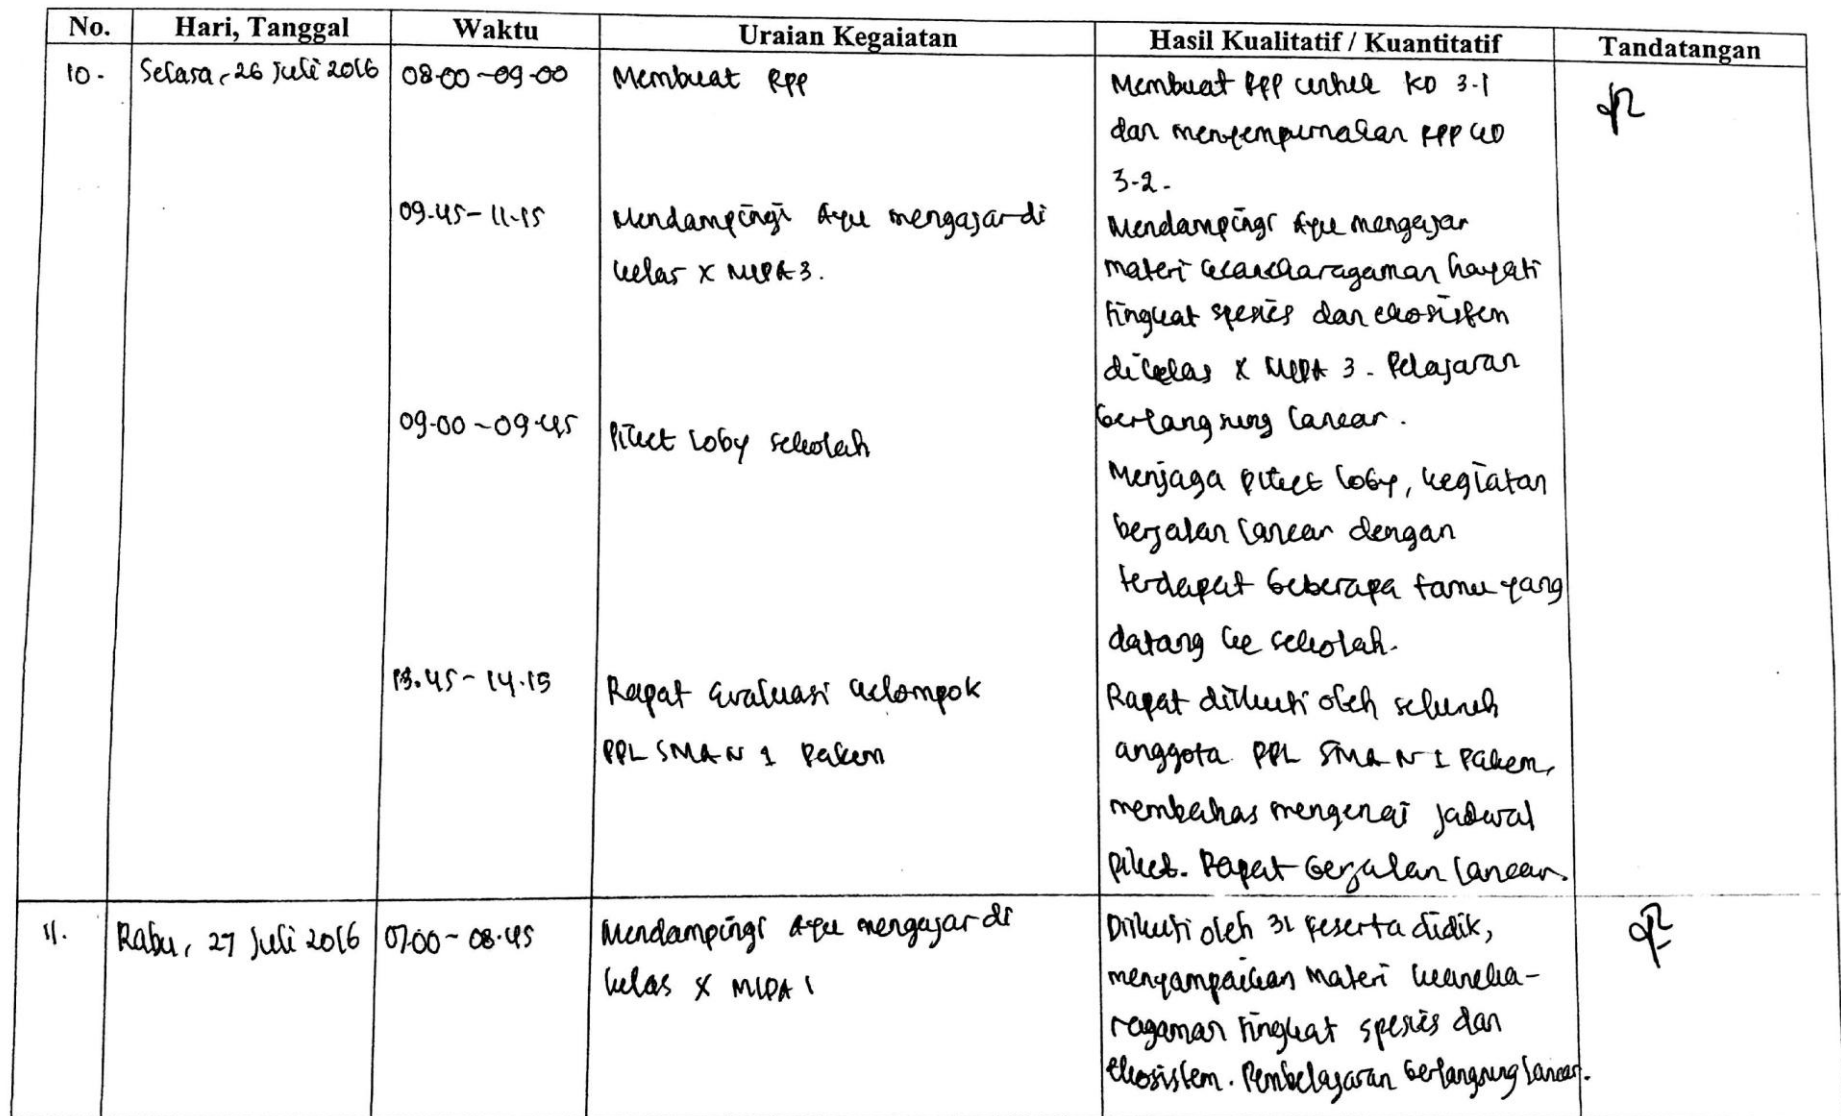 No. Hari, Tanggal Waktu Uraian Kegaiatan Hasil Kualitatif / Kuantitatif Tandatangan
10. Selasa, 26 Juli 2016 08.00 - 09.00 Membuat RPP Membuat RPP untuk KD 3.1
dan menyempurnakan RPP KD
3.2.
09.45 - 11.15 Mendampingi Ayu mengajar di Mendampingi Ayu mengajar
kelas X MIPA 3. materi keanekaragaman hayati
tingkat spesies dan ekosistem
di kelas X MIPA 3. Pelajaran
09.00 - 09.45 Piket Loby sekolah berlangsung lancar.
Menjaga piket loby, kegiatan
berjalan lancar dengan
terdapat beberapa tamu yang
datang ke sekolah.
13.45 - 14.15 Rapat evaluasi kelompok Rapat diikuti oleh seluruh
PPL SMA N 1 Pakem anggota PPL SMA N 1 Pakem,
membahas mengenai jadwal
piket. Rapat berjalan lancar.
11. Rabu, 27 Juli 2016 07.00 - 08.45 Mendampingi Ayu mengajar di Diikuti oleh 31 peserta didik,
kelas X MIPA 1 menyampaikan materi keaneka-
ragaman tingkat spesies dan
ekosistem. Pembelajaran berlangsung lancar.